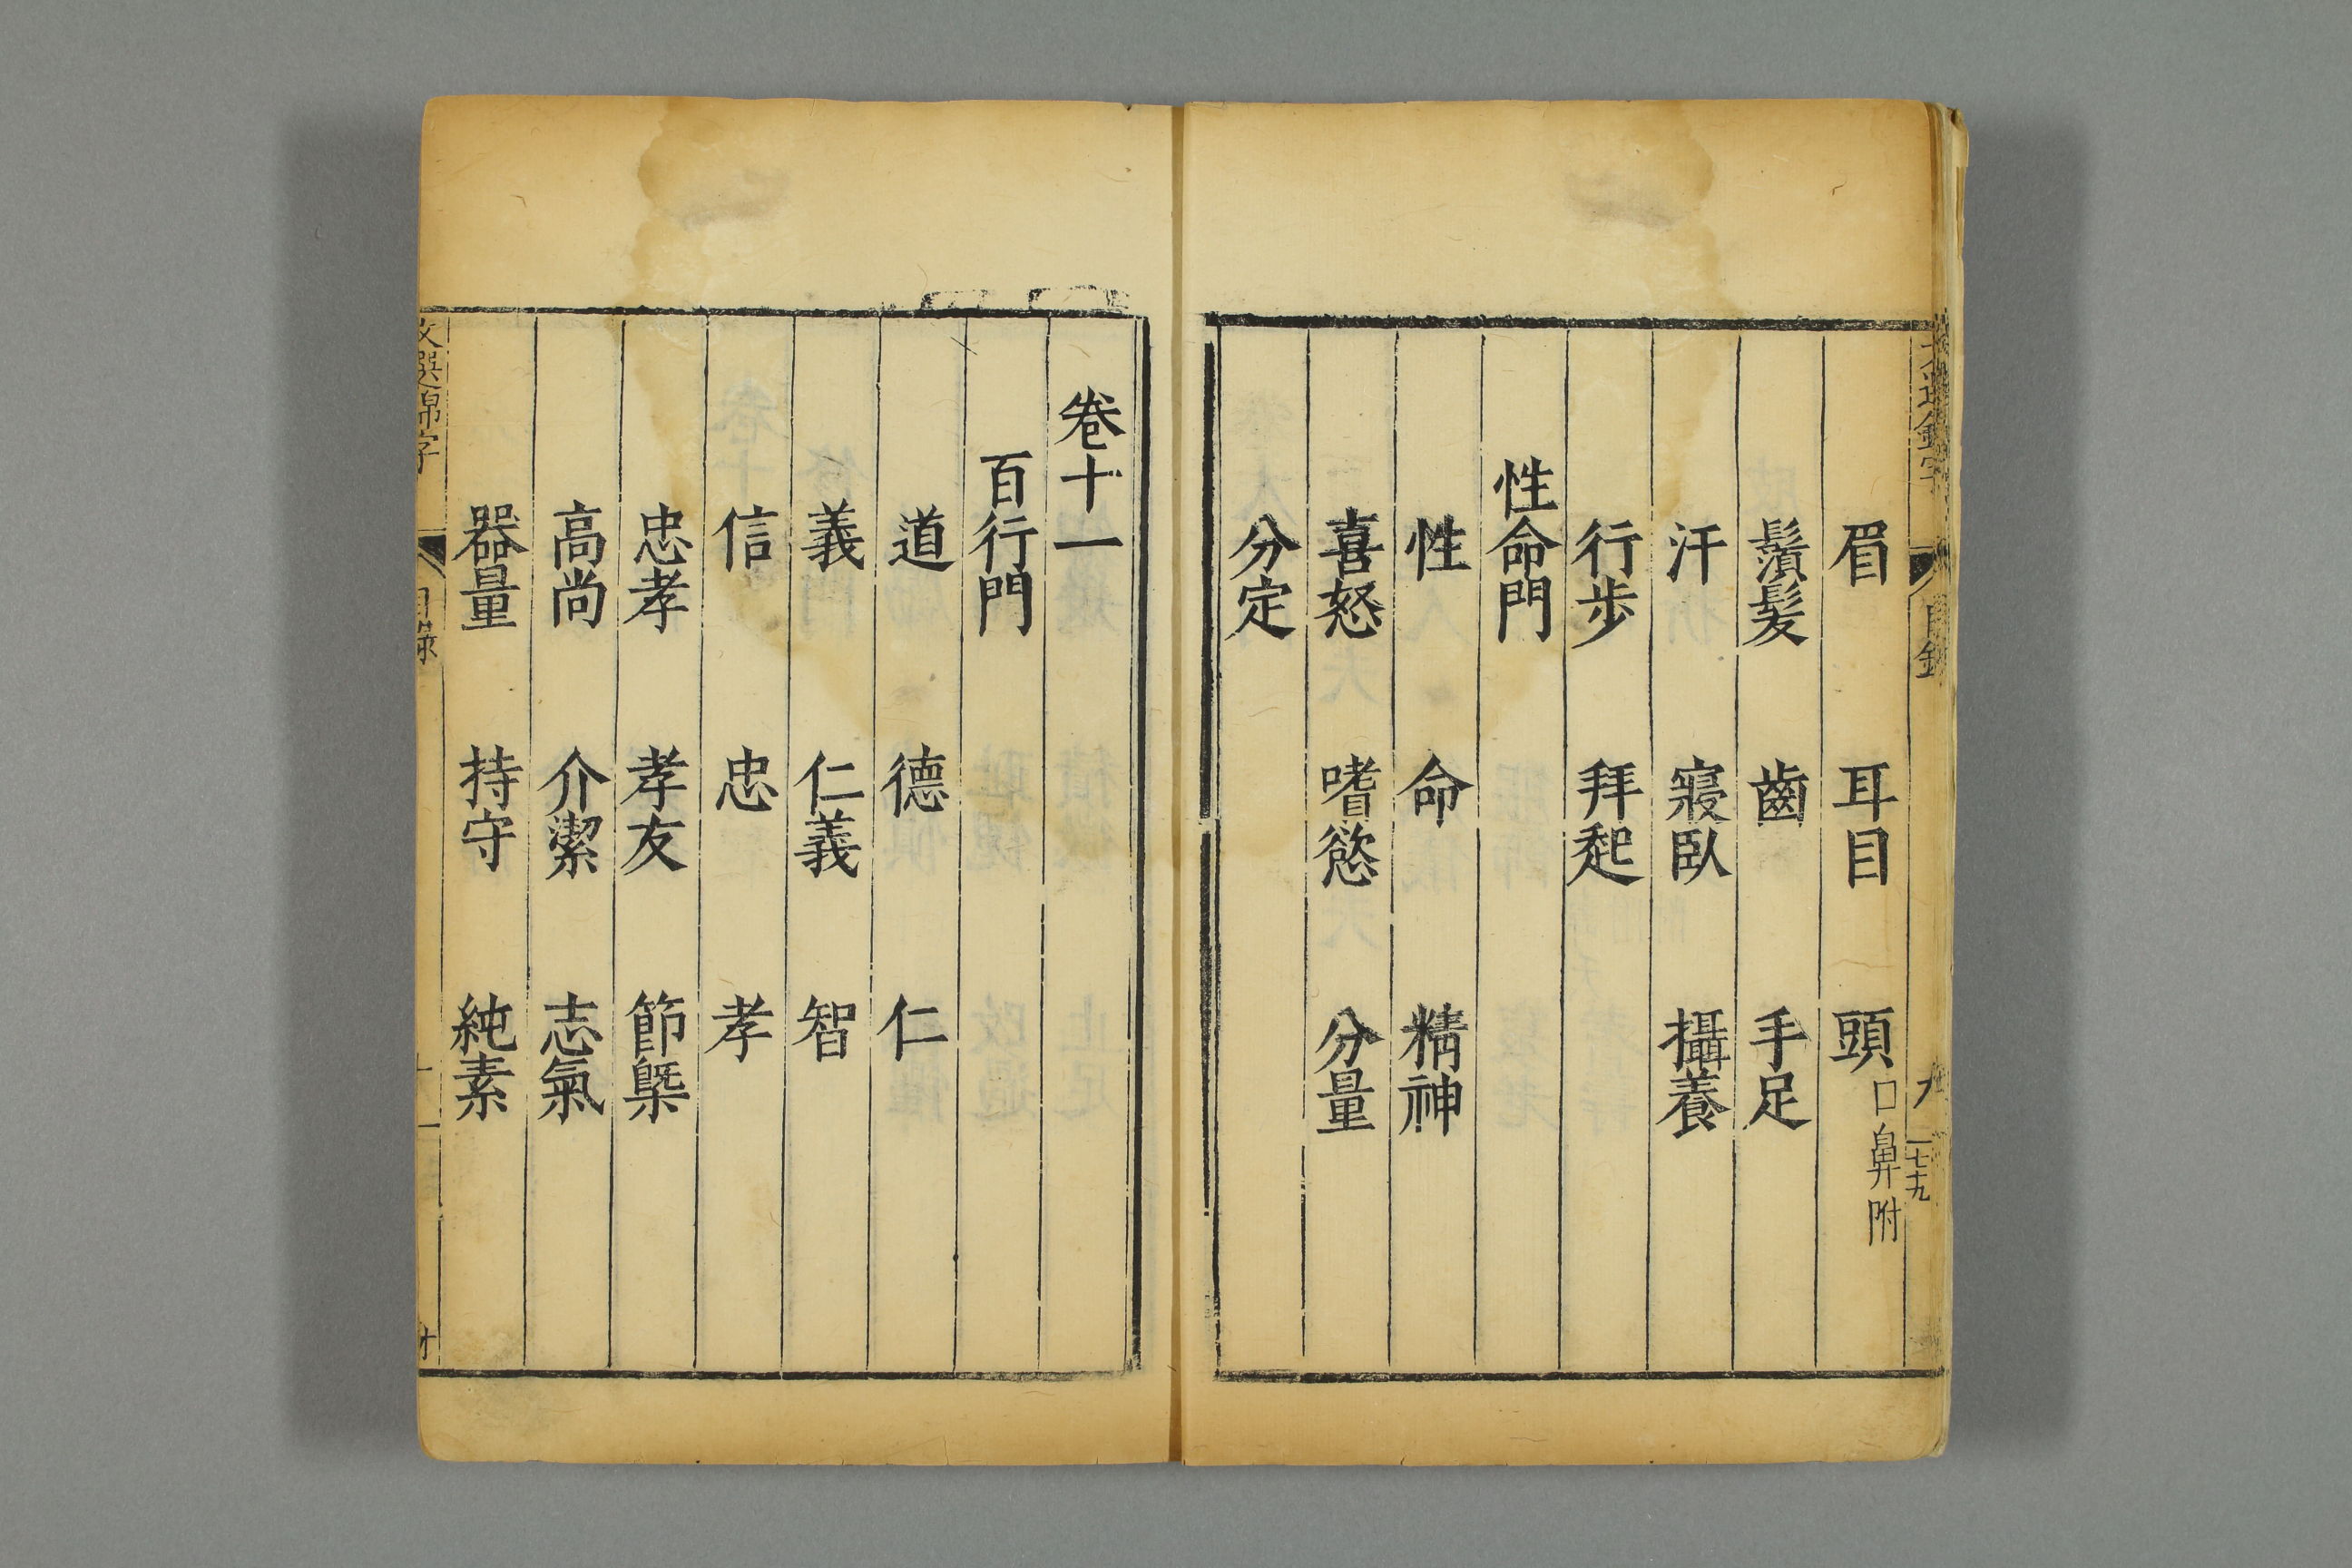 眉 耳目 頭 口鼻附
鬚髪 齒 手足
汗 寢臥 攝養
行步 拜起
性命門
性 命 精神
喜怒 嗜慾 分量
分定
卷十一
百行門
道 德 仁
義 仁義 智
信 忠 孝
忠孝 孝友 節槩
高尚 介潔 志氣
器量 持守 純素
文選錦字
目錄